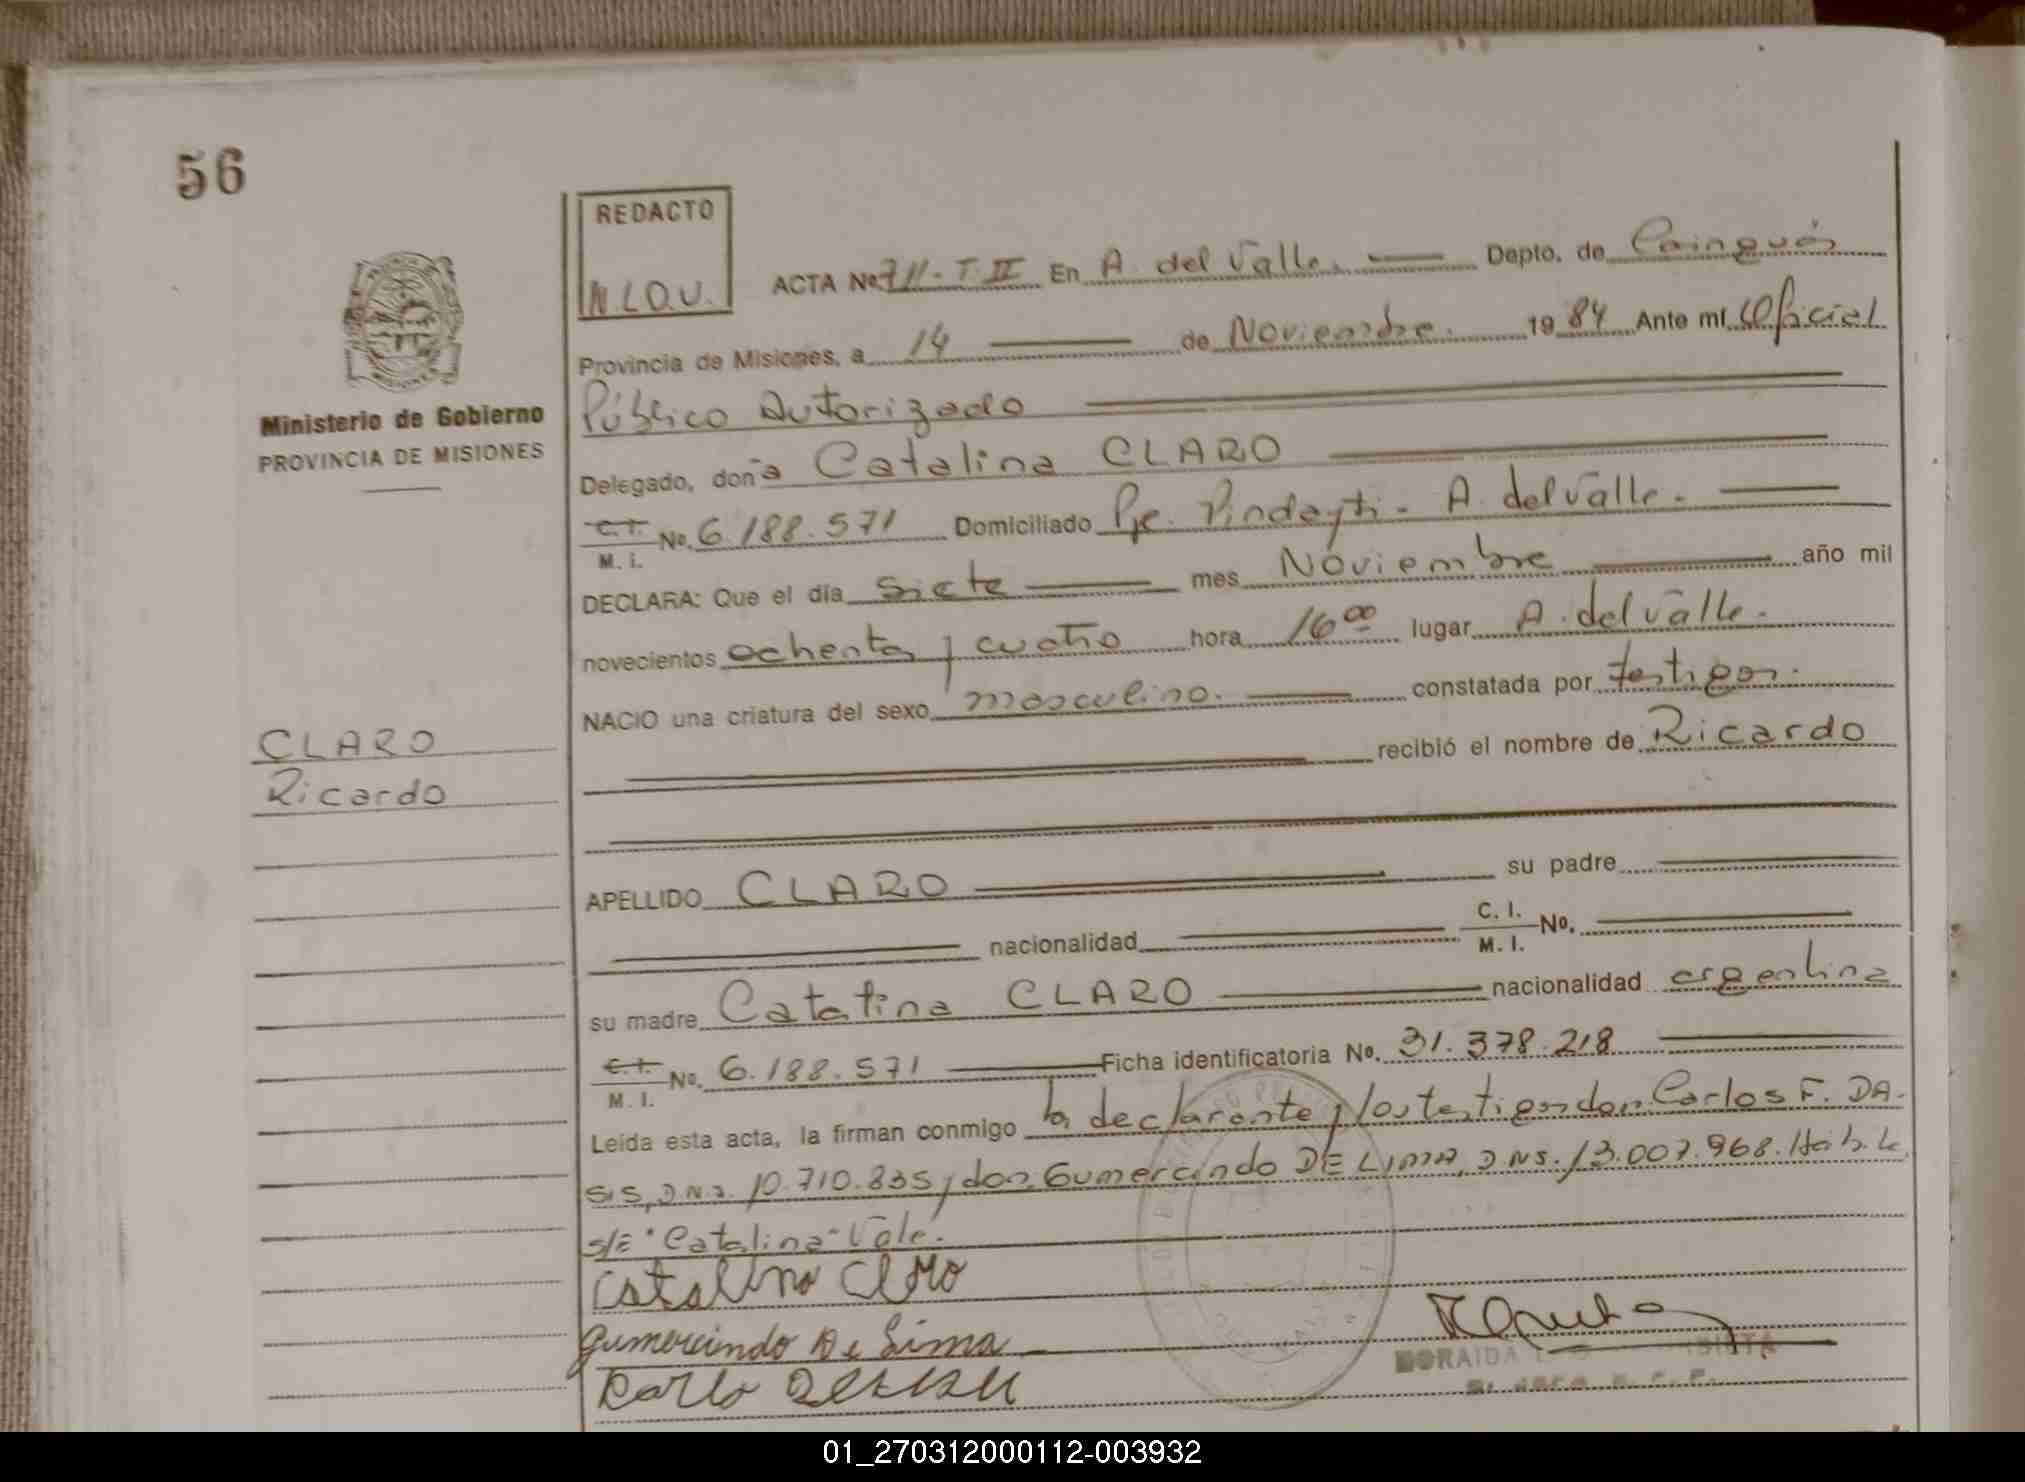 56
REDACTO
N.L.O.U.
ACTA No. 711-T.II En A. del Valle. Depto. de Cainguás
Provincia de Misiones, a 14 de Noviembre. 1984 Ante mí Oficial
Público Autorizado
Ministerio de Gobierno
PROVINCIA DE MISIONES
Delegado, doña Catalina CLARO
C.I. M. I. No. 6.188.571 Domiciliado Pje. Pindayti - A. del Valle.
DECLARA: Que el día siete mes Noviembre año mil
novecientos ochenta y cuatro hora 16 00 lugar A. del Valle.
NACIO una criatura del sexo masculino. constatada por testigos.
CLARO
Ricardo
recibió el nombre de Ricardo
APELLIDO CLARO su padre
nacionalidad C. I. M. I. No.
su madre Catalina CLARO nacionalidad argentina
C.I. M. I. No. 6.188.571 Ficha identificatoria No. 31.378.218
Leída esta acta, la firman conmigo la declarante y los testigos don Carlos F. DA-
SIS, D.N.I. 10.710.835 y don Gumercindo DE LIMA, D.N.I. 13.007.968. Hábile
s/E "Catalina" Vale.
Catalina Claro
Gumercindo De Lima
MISIONES
01_270312000112-003932